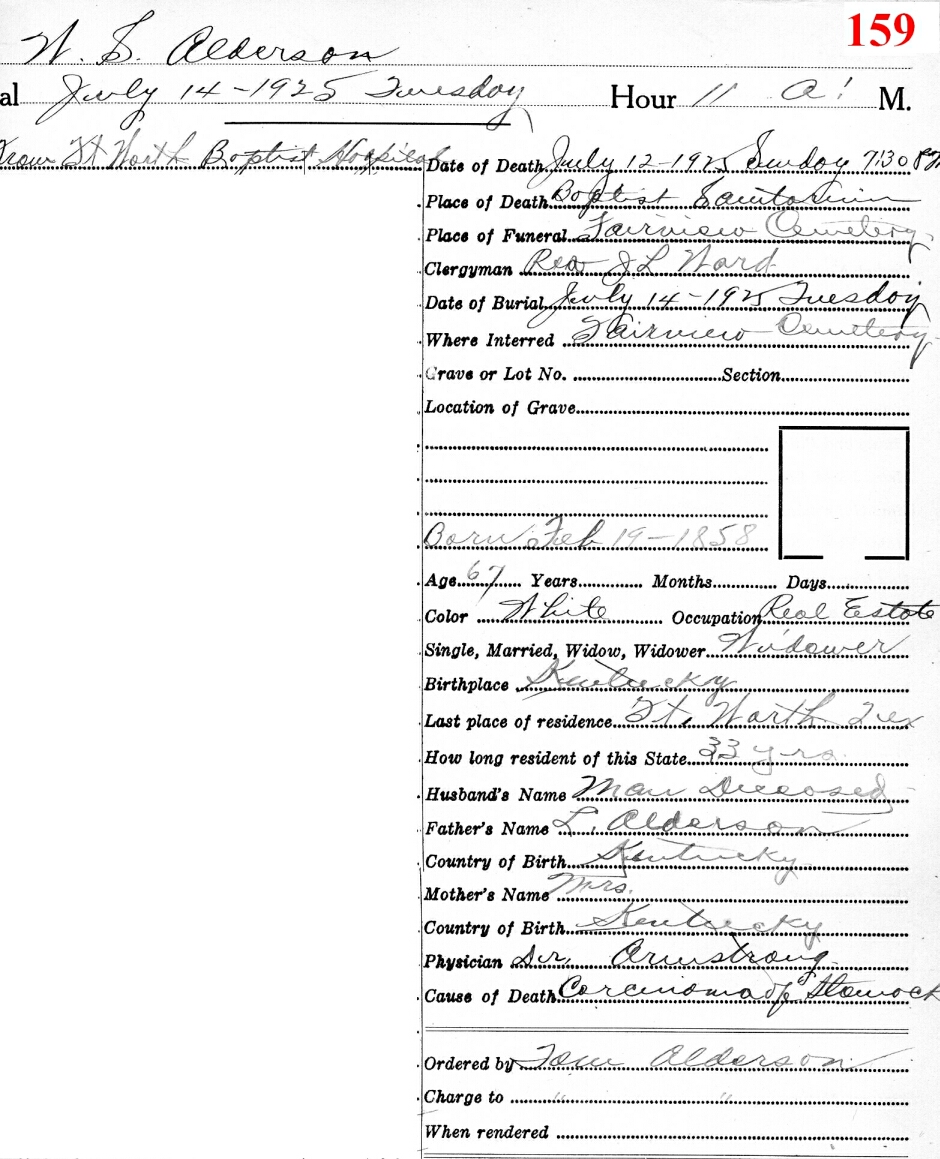 159
W. S. Alderson
al July 14-1925 Tuesday Hour 11 A. M.
From Ft Worth Baptist Hospital
Date of Death July 12-1925 Sunday 7:30 PM
Place of Death Baptist Sanitorium
Place of Funeral Fairview Cemetery
Clergyman Rev J L Ward
Date of Burial July 14-1925 Tuesday
Where Interred Fairview Cemetery
Grave or Lot No. Section
Location of Grave
Born Feb 19-1858
Age 67 Years Months Days
Color White Occupation Real Estate
Single, Married, Widow, Widower Widower
Birthplace Kentucky
Last place of residence Ft. Worth Tex
How long resident of this State 33 yrs.
Husband's Name Deceased
Father's Name L. Alderson
Country of Birth Kentucky
Mother's Name Mrs.
Country of Birth Kentucky
Physician Dr. Armstrong
Cause of Death Carcinoma of Stomack
Ordered by Tom Alderson
Charge to " "
When rendered